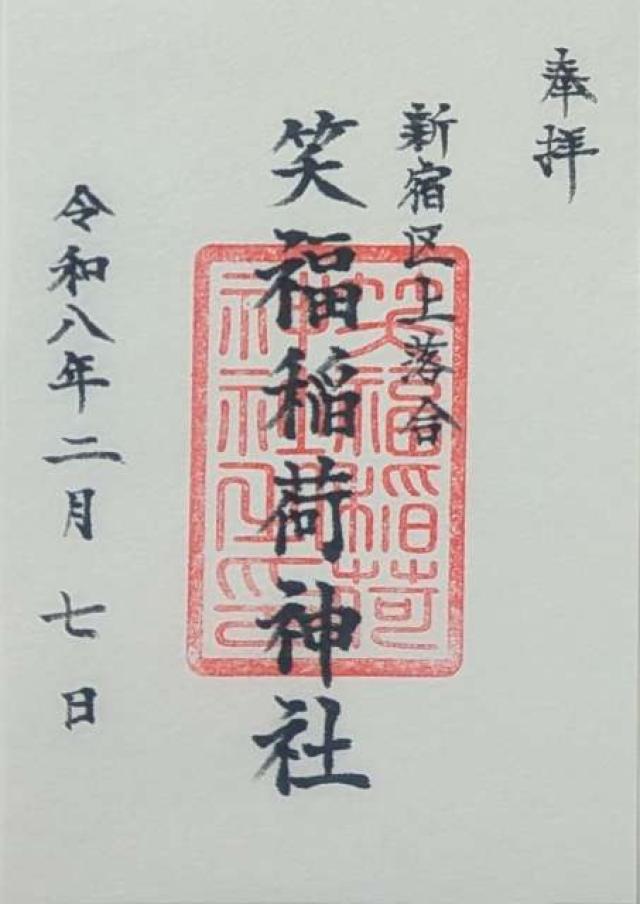 奉拝
新宿区上落合
笑福稲荷神社
令和八年二月七日
笑福稲荷
神社之印